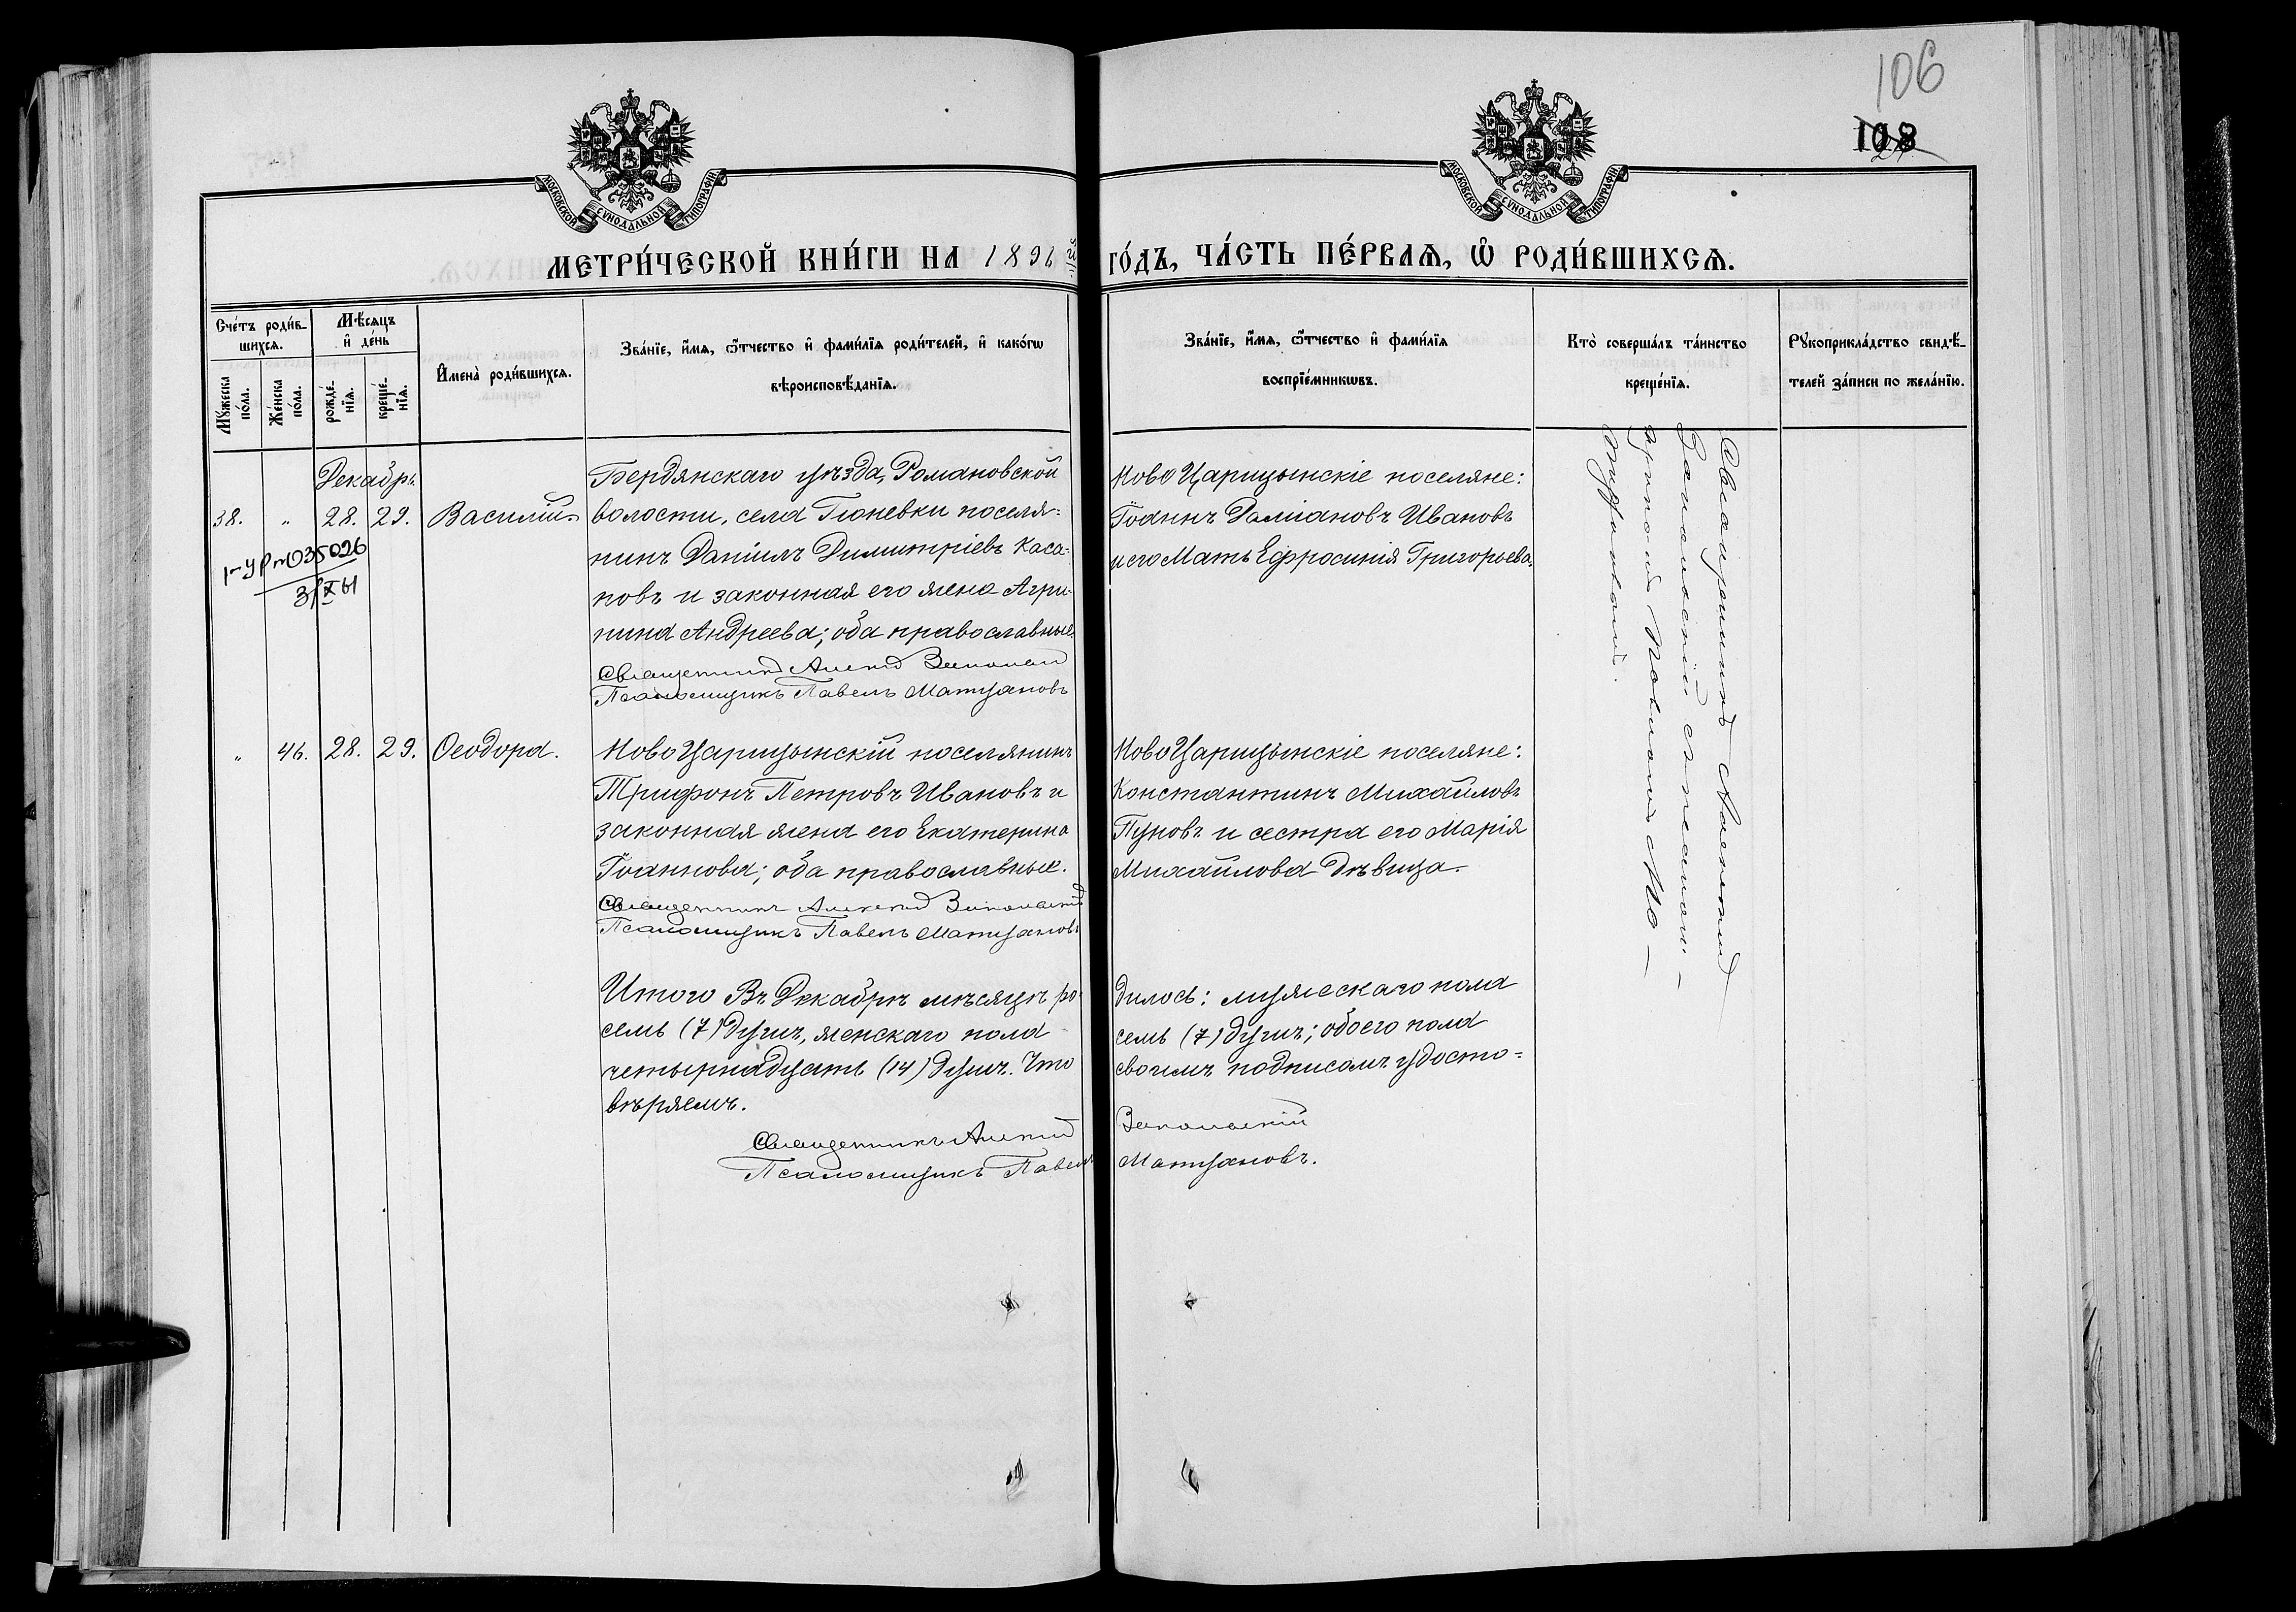 106
108
МОСКОВСКОЙ СѴНОДАЛЬНОЙ ТИПОГРАФІИ
МОСКОВСКОЙ СѴНОДАЛЬНОЙ ТИПОГРАФІИ
МЕТРИ́ЧЕСКОЙ КНИ́ГИ НА 1896
ГО́ДЪ, ЧА́СТЬ ПЕ́РВАѦ, Ѡ҆ РОДИ́ВШИХСѦ.
Сче́тъ роди́в-
шихсѧ.
Мꙋ́жеска
по́ла.
Же́нска
по́ла.
Мѣ́сѧцъ
и҆ де́нь
рожде́-
нїѧ.
креще́-
нїѧ.
И҆мена̀ роди́вшихсѧ.
Зва́нїе, и҆́мѧ, ѻ҆́тчество и҆ фами́лїѧ роди́телей, и҆ како́гѡ
вѣроисповѣ́данїѧ.
Зва́нїе, и҆́мѧ, ѻ҆́тчество и҆ фами́лїѧ
воспрїе́мникѡвъ.
Кто̀ соверша́лъ та́инство
креще́нїѧ.
Рꙋкоприкла́дство свидѣ́-
телей за́писи по жела́нїю.
Декабрь
38. " 28. 29. Василій.
Бердянскаго уѣзда, Романовской
волости, села Гюневки поселя=
нинъ Даніилъ Димитріевъ Каса=
новъ и законная его жена Агри-
пина Андреева; оба православные.
Священникъ Алексій Запольскій
Псаломщикъ Павелъ Матусановъ
НовоЦарицынскіе поселяне:
Іоаннъ Даміановъ Ивановъ
и его Мать Ефросинія Григорьева.
Священникъ Алексій
Запольскій съ псалом-
щикомъ Павломъ Ма-
1-УР № 035026
" 46. 28. 29. Ѳеодора.
НовоЦарицынскій поселянинъ
Трифонъ Петровъ Ивановъ и
законная жена его Екатерина
Іоаннова; оба православные.
Священникъ Алексій Запольскій
Псаломщикъ Павелъ Матусановъ
НовоЦарицынскіе поселяне:
Константинъ Михайловъ
Пуновъ и сестра его Марія
Михайлова дѣвица.
Итого Въ Декабрѣ мѣсяцѣ ро-
дилось: мужескаго пола
семь (7) душъ, женскаго пола
семь (7) душъ; обоего пола
четырнадцать (14) душъ. Что
своимъ подписомъ удосто=
вѣряемъ.
Священникъ Алексій Запольскій
Псаломщикъ Павелъ Матусановъ.